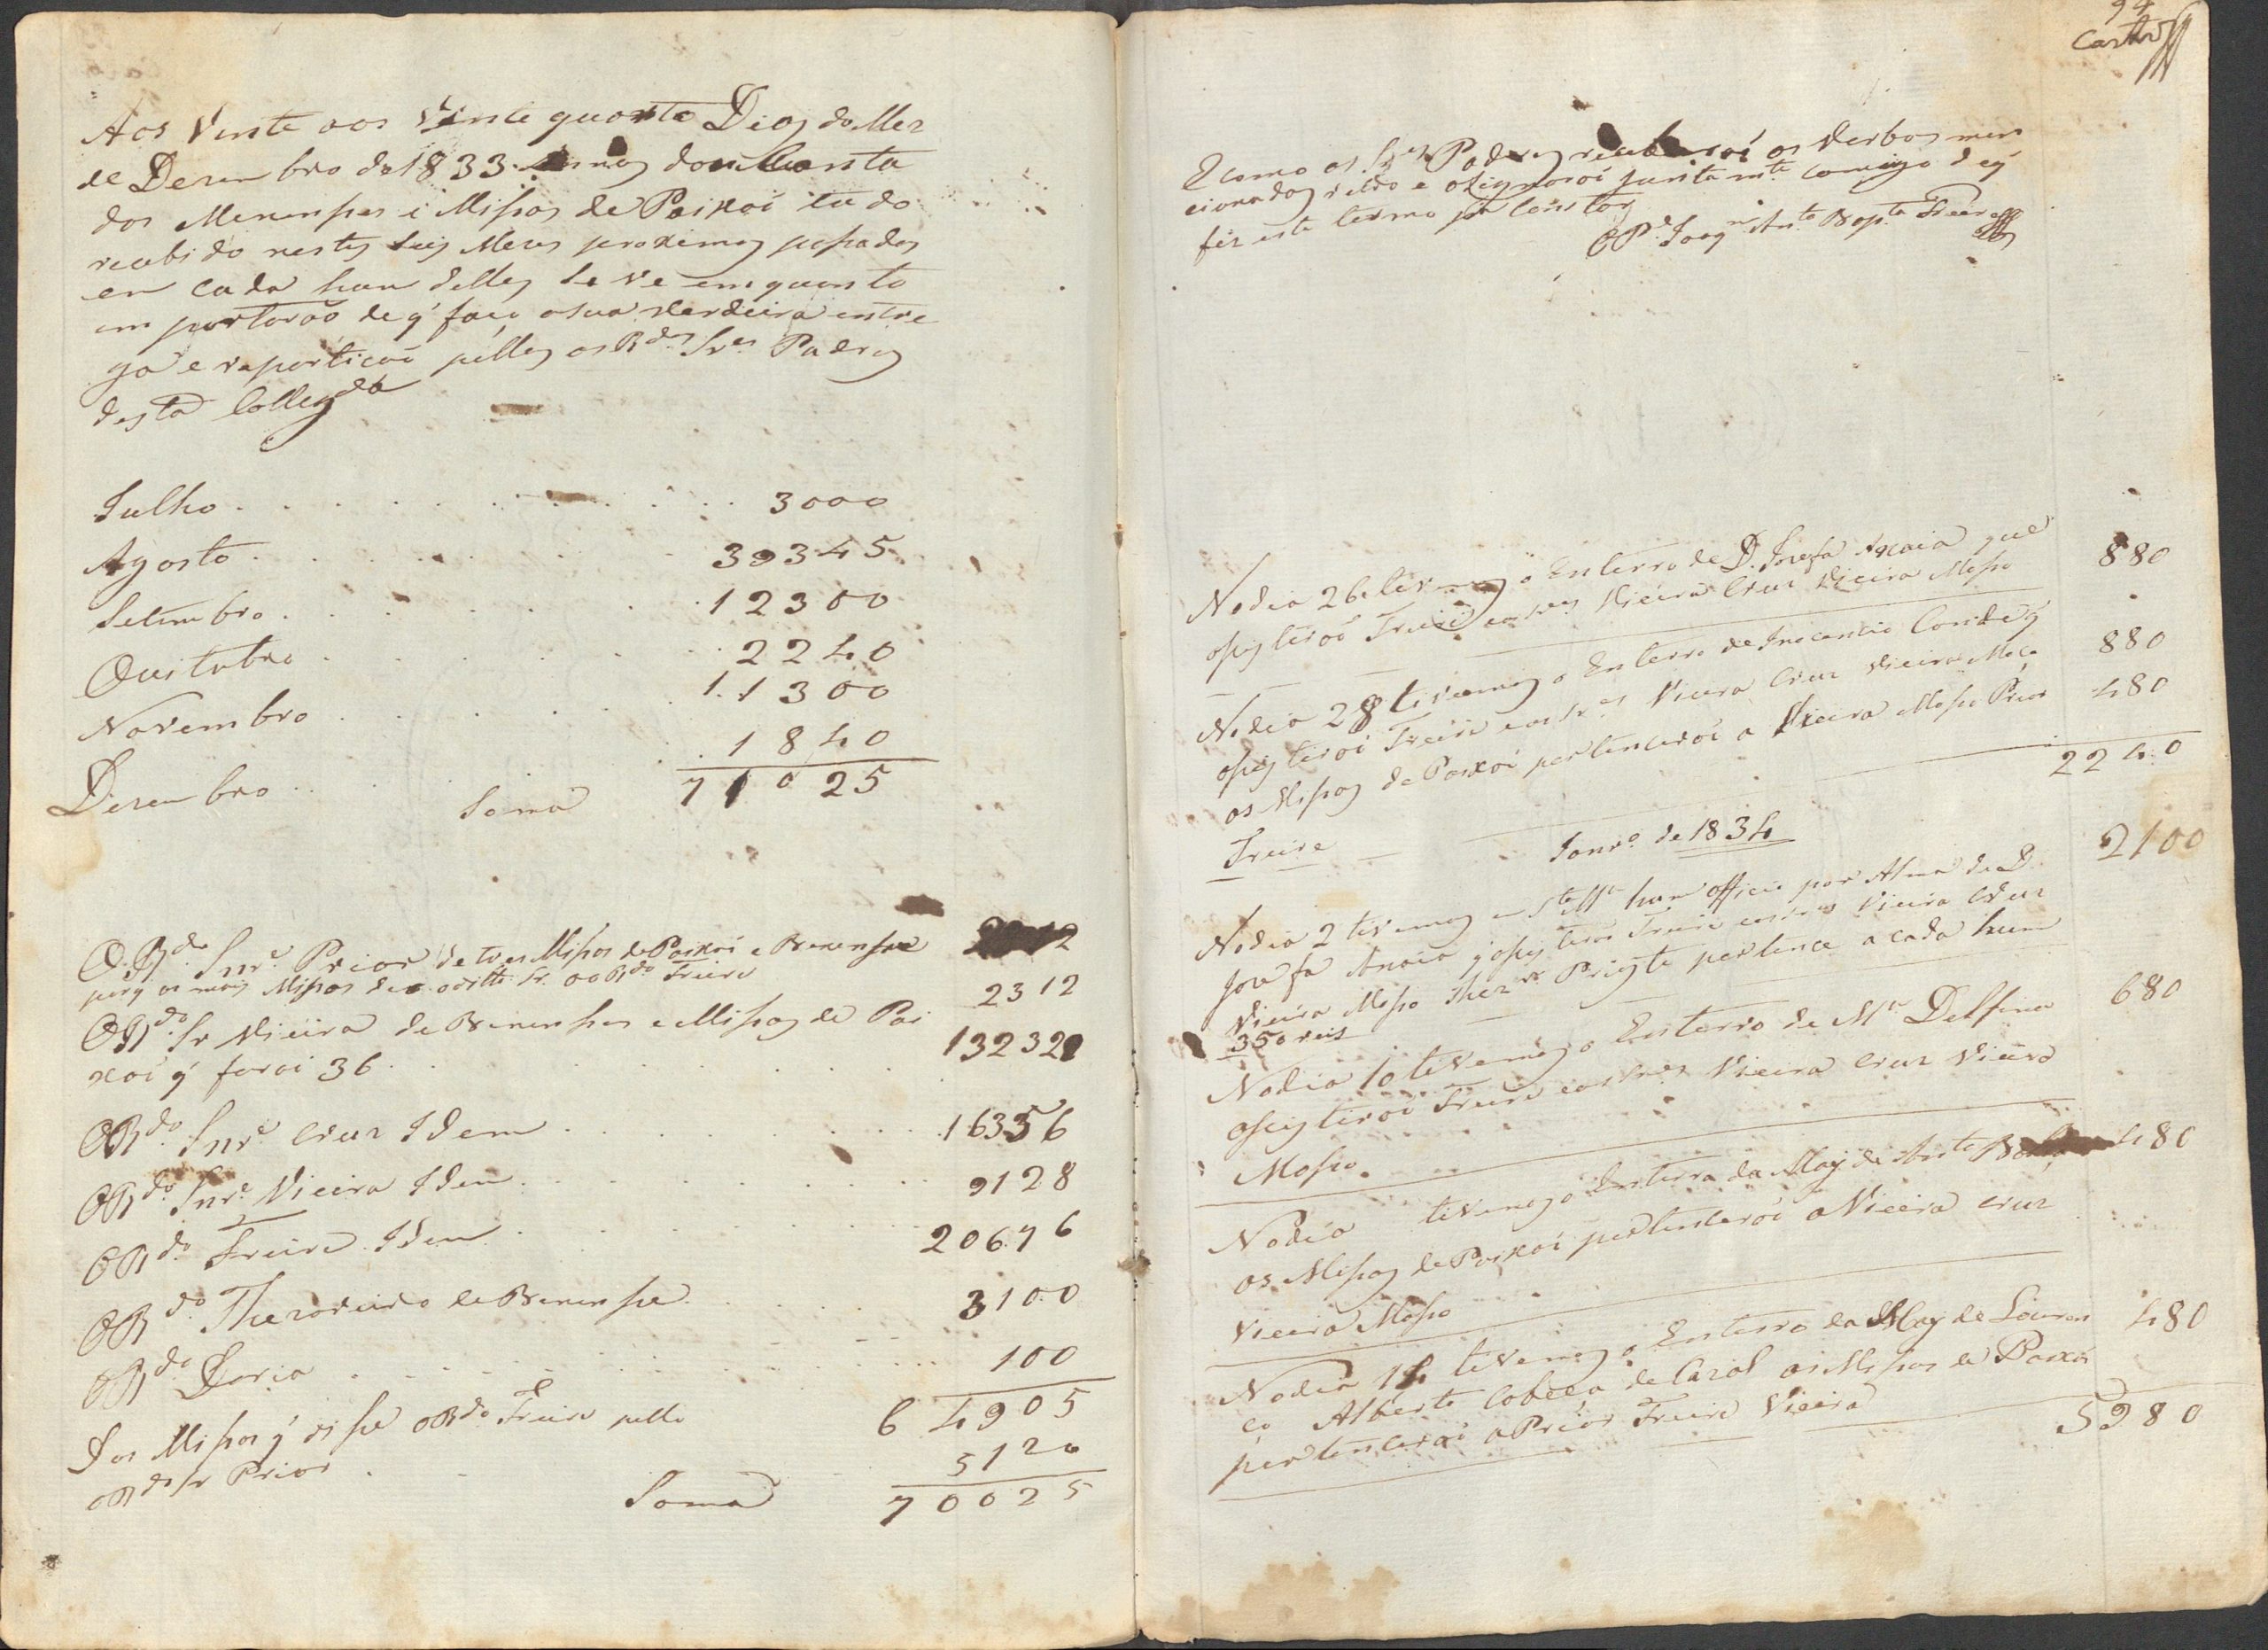 Aos Vinte aos Vinte quarto Dias do Mes
de Desembro de 1833. damos Conta
dos Menenses i Missas de Paixoi tudo
recebido nestes seis Meses proximos passados
em cada hum delles se ve em quanto
em portaraõ de q̃ faço a sua verdeira entre
ga e repartiçaõ pellos os Rdos Snres Padres
desta Collegda
Julho . . . . . . . . . 3000
Agosto . . . . . . . 39345
Setimbro . . . . . . 12300
Ouitubro . . . . . . 2240
Novembro . . . . . . 11300
Desembro . . . . 1840
Soma 71025
O Rdo Snre Prior de tres Missas de Paixoi e Benense 2312
porq as mais Missas disse o Rdo Freire
O Rdo Sr Vieira de Benenses e Missas de Pai 2312
xoi q̃ foroi 36 . . . . . . . . 13232
O Rdo Snre Crus Idem . . . . . . . . 16356
O Rdo Snre Vieira Idem . . . . . . . . 9128
O Rdo Freire Idem . . . . . . . . 20676
O Rdo Thezoreiro de Benense . . . . . . 3100
O Rdo Doria . . . . . . . . . 100
64905
Das Missas q̃ disse o Rdo Freire pello
o Rdo Sr Prior . . . . 5120
Soma 70025
94
Castro
E como os Snres Padres receberoi as Verbas men
cionadas retro e asignaroi juntamte comigo de q̃
fiz este termo pa Constar
O Pe Joaqm Anto Bapta Freire
No dia 26 tivemos o Enterro de D. Josefa Anaia que 880
asistiroi Freire eos Snres Vieira Crus Vieira Mosso
No dia 28 tivemos o Enterro de Inocencio Conde q̃ 880
asistiroi Freire eos Snres Vieira Crus Vieira Moço
as Missas de Paixoi pertenceroi a Vieira Mosso Prior 480
Freire 2240
Janro de 1834
No dia 2 tivemos em Sta Ma hum officio por Alma de D. 2100
Josefa Anaia q̃ asistiroi Freire eos Snres Vieira Crus
Vieira Mosso Thezro Prioste pertence a cada hum
350 reis
No dia 10 tivemos o Enterro de Ma Delfina 680
asistiroi Freire eos Snres Vieira Crus Vieira
Mosso
No dia tivemos o Enterro da May de Anto 480
as Missas de Paixoi pertenceroi a Vieira Crus
Vieira Mosso
No dia 14 tivemos o Enterro da May de Louren 480
ço Alberto Cabeça de Casal as Missas de Paixoi
pertenceroi a Prior Freire Vieira
5980